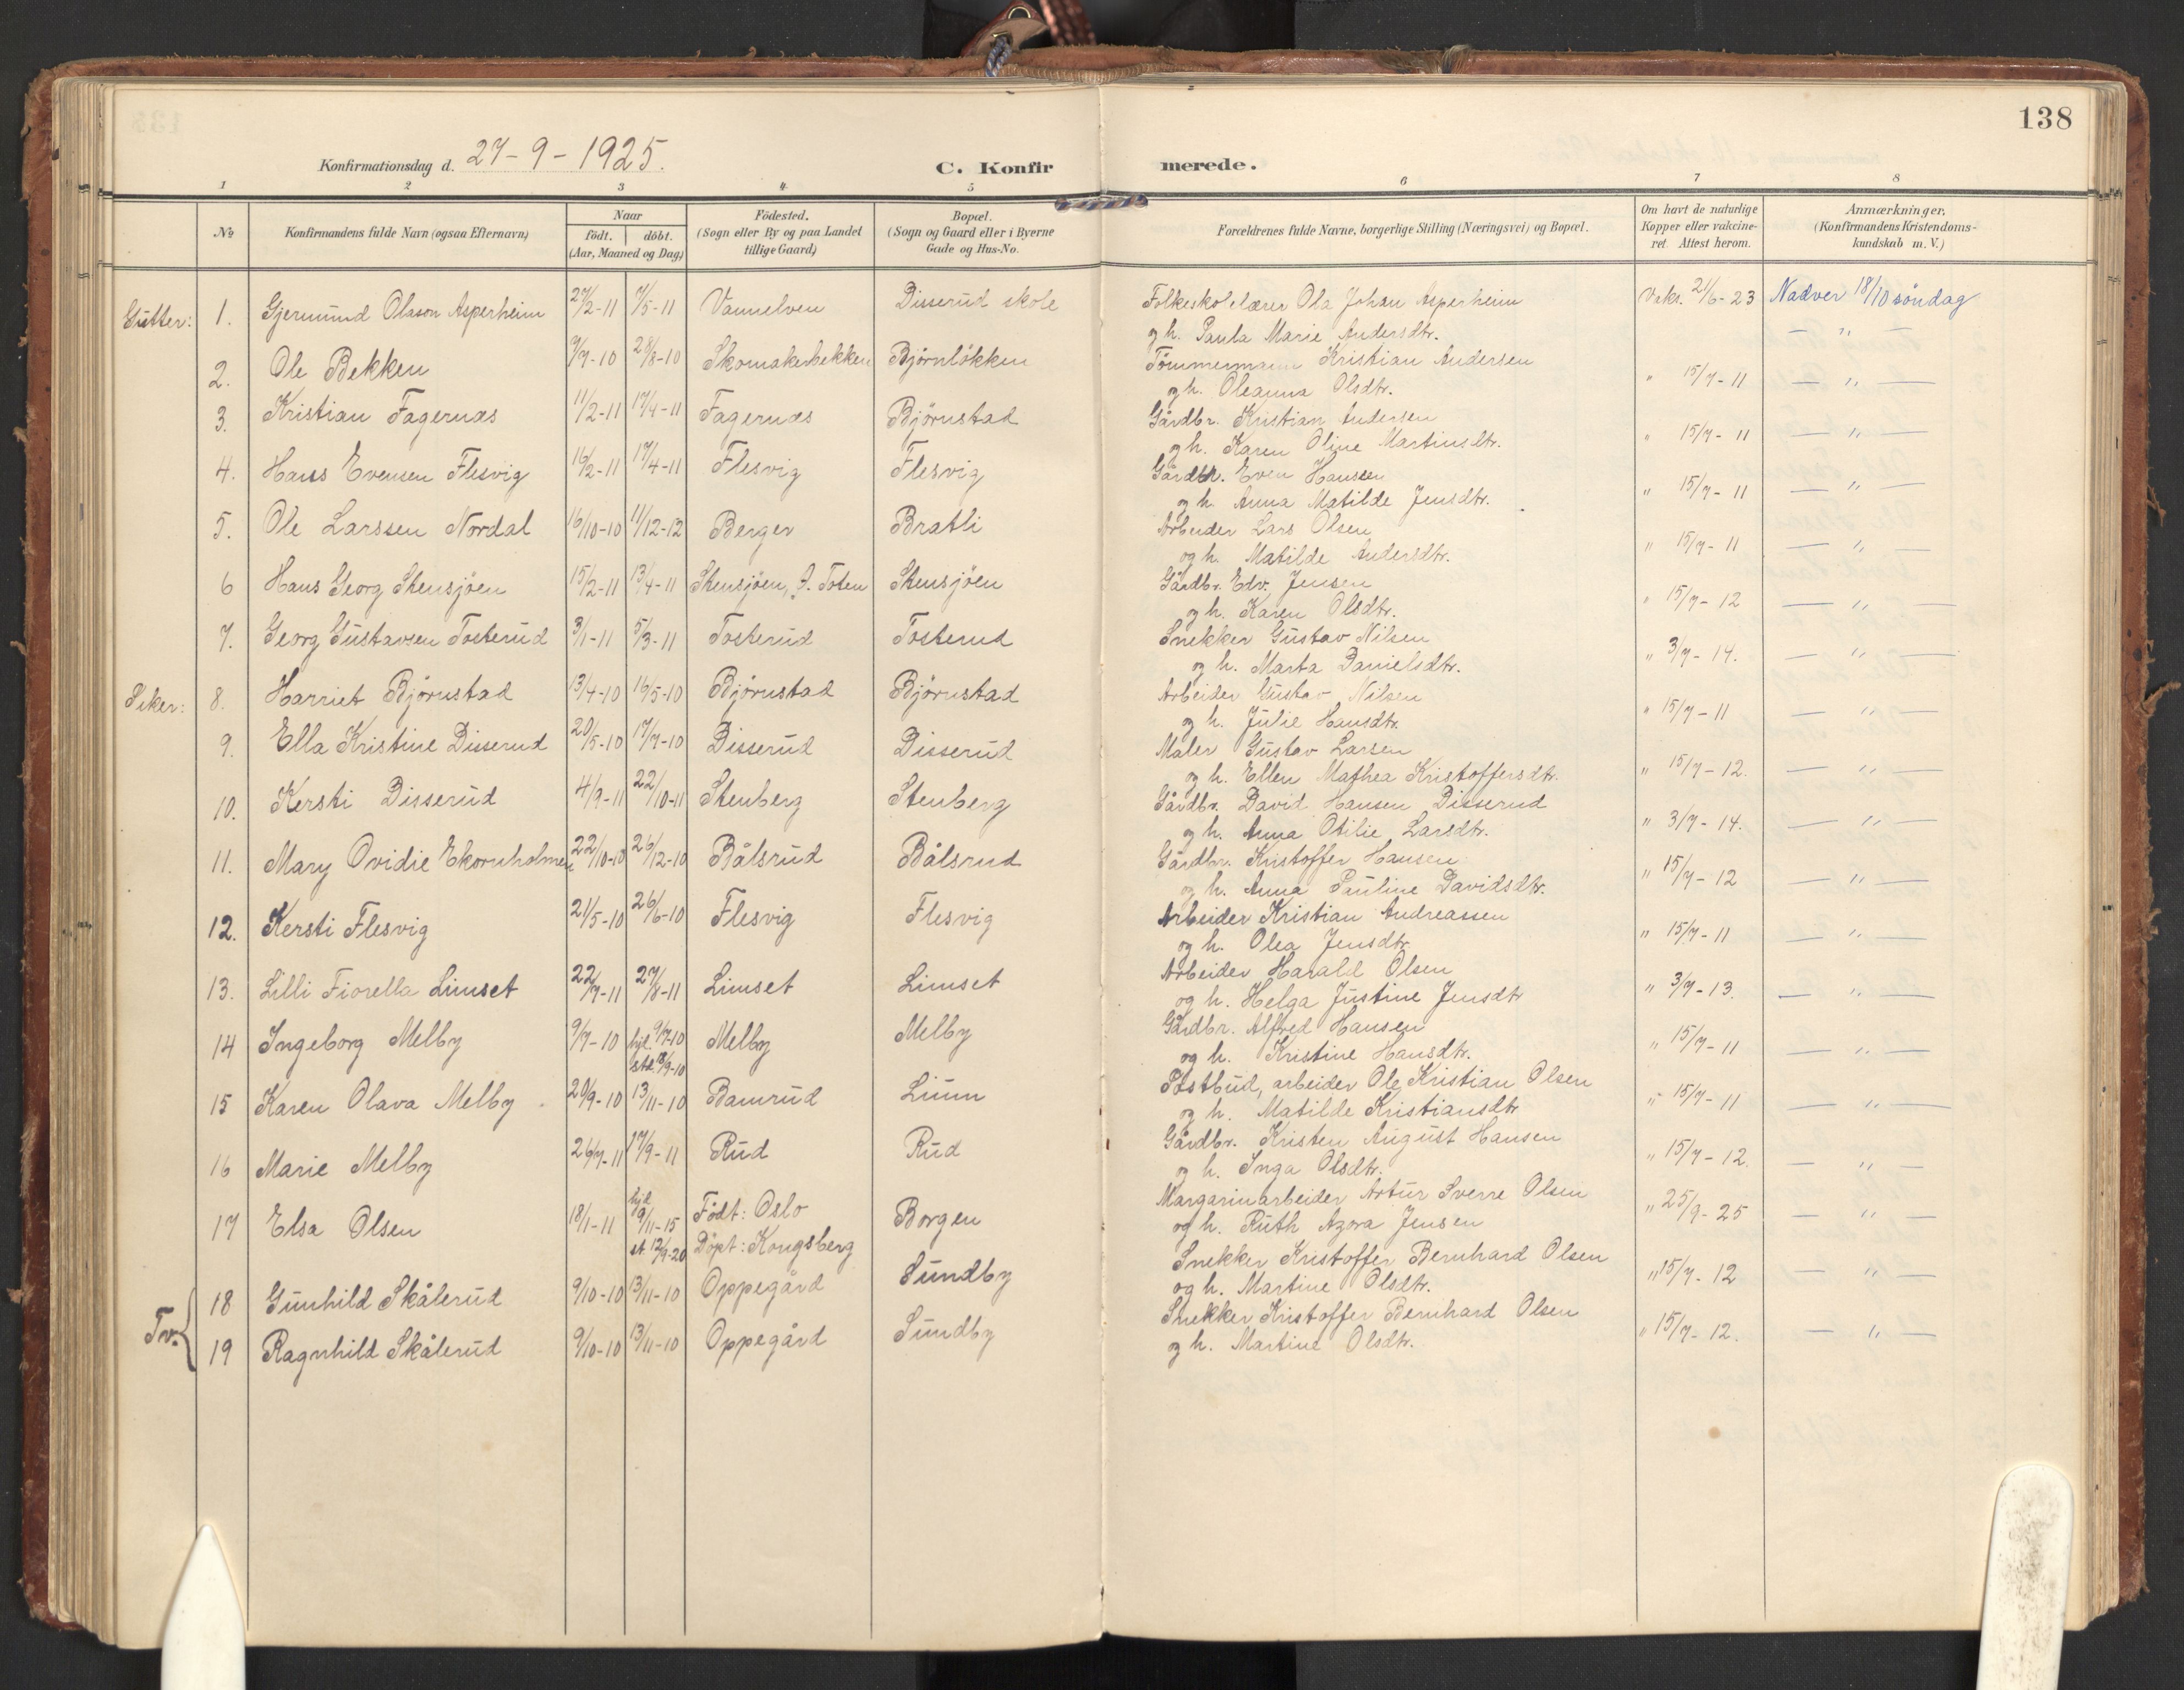 138
Konfirmationsdag d. 27-9-1925.
C. Konfirmerede.
1 2 3 4 5 6 7 8
No Konfirmandens fulde Navn (ogsaa Efternavn) Naar födt. döbt. (Aar, Maaned og Dag) Födested. (Sogn eller By og paa Landet tillige Gaard) Bopæl. (Sogn og Gaard eller i Byerne Gade og Hus-No. Forældrenes fulde Navne, borgerlige Stilling (Næringsvei) og Bopæl. Om havt de naturlige Kopper eller vakcineret. Attest herom. Anmærkninger. (Konfirmandens Kristendomskundskab m. V.)
Gutter: 1. Gjermund Olason Asperheim 27/2-11 7/5-11 Vannelven Disserud skole Folkeskolelærer Ola Johan Asperheim Vaks. 21/6-23 Nadver 18/10 söndag
og h. Paula Marie Andersdtr. — " —
2. Ole Bekken 7/7-10 28/8-10 Skomakerbekken Björnlökken Tömmermann Kristian Andersen
og h. Oleanna Olsdtr. " 15/7-11 — " —
3. Kristian Fagernæs 11/2-11 17/4-11 Fagernæs Björnstad Gårdbr. Kristian Andersen
og h. Karen Oline Martinsdtr. " 15/7-11 — " —
4. Hans Evensen Flesvig 16/2-11 17/4-11 Flesvig Flesvig Gårdbr. Even Hanssen
og h. Anna Matilde Jensdtr. " 15/7-11 — " —
5. Ole Larssen Nordal 16/10-10 11/12-12 Berger Bratli Arbeider Lars Olsen
og h. Matilde Andersdtr. " 15/7-11 — " —
6 Hans Georg Stensjöen 15/2-11 13/4-11 Stensjöen, Ö. Toten Stensjöen Gårdbr. Edv. Jensen
og h. Karen Olsdtr. " 15/7-12 — " —
7. Georg Gustavsen Tosterud 3/1-11 5/3-11 Tosterud Tosterud Snekker Gustav Nilsen
og h. Marta Danielsdtr. " 3/7-14. — " —
Piker: 8. Harriet Björnstad 13/4-10 16/5-10 Björnstad Björnstad Arbeider Gustav Nilsen
og h. Julie Hansdtr. " 15/7-11 — " —
9. Ella Kristine Disserud 20/5-10 17/7-10 Disserud Disserud Maler Gustav Larsen
og h. Ellen Mathea Kristoffersdtr. " 15/7-12. — " —
10. Kersti Disserud 4/9-11 22/10-11 Stenberg Stenberg Gårdbr. David Hansen Disserud
og h. Anna Otilie Larsdtr. " 3/7-14. — " —
11. Mary Ovidie Ekornholmen 22/10-10 26/12-10 Bålsrud Bålsrud Gårdbr. Kristoffer Hansen
og h. Anna Pauline Davidsdtr. " 15/7-12 — " —
12. Kersti Flesvig 21/5-10 26/6-10 Flesvig Flesvig Arbeider Kristian Andreassen
og h. Olea Jensdtr. " 15/7-11 — " —
13. Lilli Fiorella Limset 22/7-11 27/8-11 Limset Limset Arbeider Harald Olsen
og h. Helga Justine Jensdtr " 3/7-13. — " —
14 Ingeborg Melby 9/7-10 hjd. 9/7-10 Melby Melby Gårdbr. Alfred Hansen
st. 18/9-10 og h. Kristine Hansdtr. " 15/7-11 — " —
15 Karen Olava Melby 20/9-10 13/11-10 Bamrud Linn Postbud, arbeider Ole Kristian Olsen
og h. Matilde Kristiansdtr " 15/7-11 — " —
16 Marie Melby 26/7-11 17/9-11 Rud Rud Gårdbr. Kristen August Hansen
og h. Inga Olsdtr. " 15/7-12. — " —
17 Elsa Olsen 18/1-11 hjd 9/11-15 Födt: Oslo Borgen Margarinarbeider Artur Sverre Olsen
st 12/9-20 Döpt: Kongsberg og h. Ruth Azora Jensen " 25/9-25 — " —
Tv. 18 Gunhild Skålerud 9/10-10 13/11-10 Oppegård Sundby Snekker Kristoffer Bernhard Olsen
og h. Martine Olsdtr. " 15/7-12 — " —
19 Ragnhild Skålerud 9/10-10 13/11-10 Oppegård Sundby Snekker Kristoffer Bernhard Olsen
og h. Martine Olsdtr. " 15/7-12. — " —